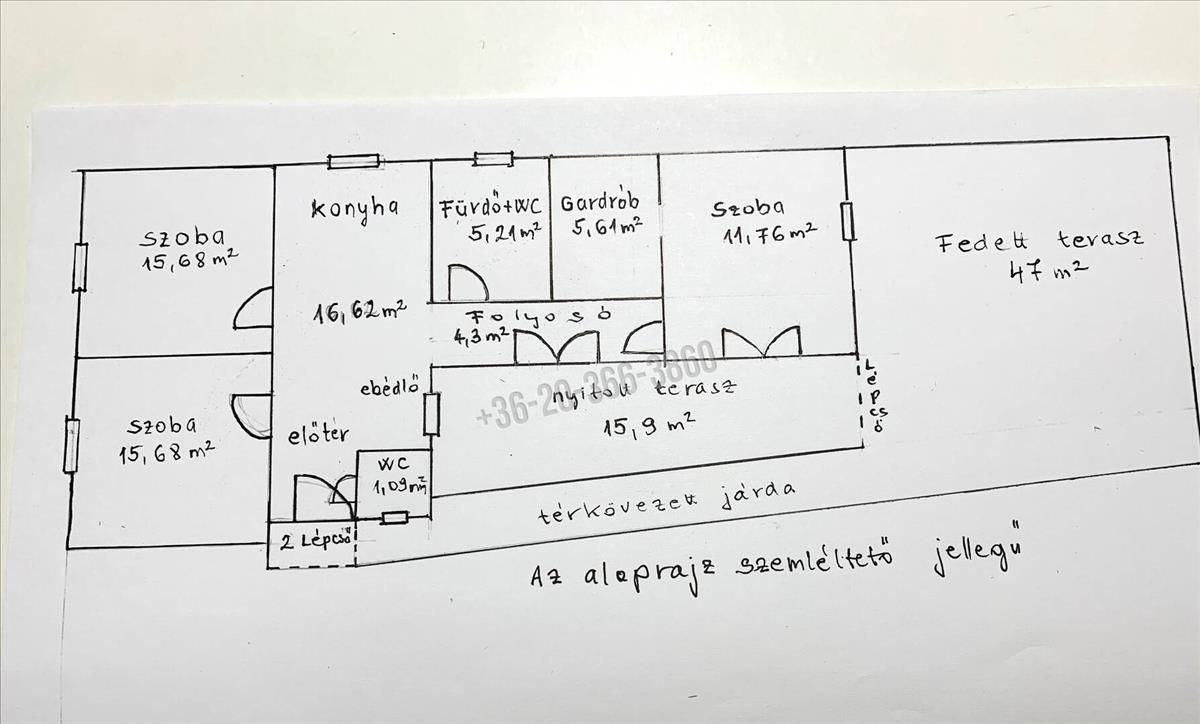 Szoba
15,68 m²
Konyha
16,62 m²
Fürdő+WC
5,21 m²
Gardrób
5,61 m²
Szoba
11,76 m²
Fedett terasz
47 m²
Folyosó
4,3 m²
ebédlő
előtér
Szoba
15,68 m²
WC
1,09 m²
2 Lépcső
nyitott terasz
15,9 m²
Lépcső
térkövezett járda
Az alaprajz szemléltető jellegű
+36-20-366-3860